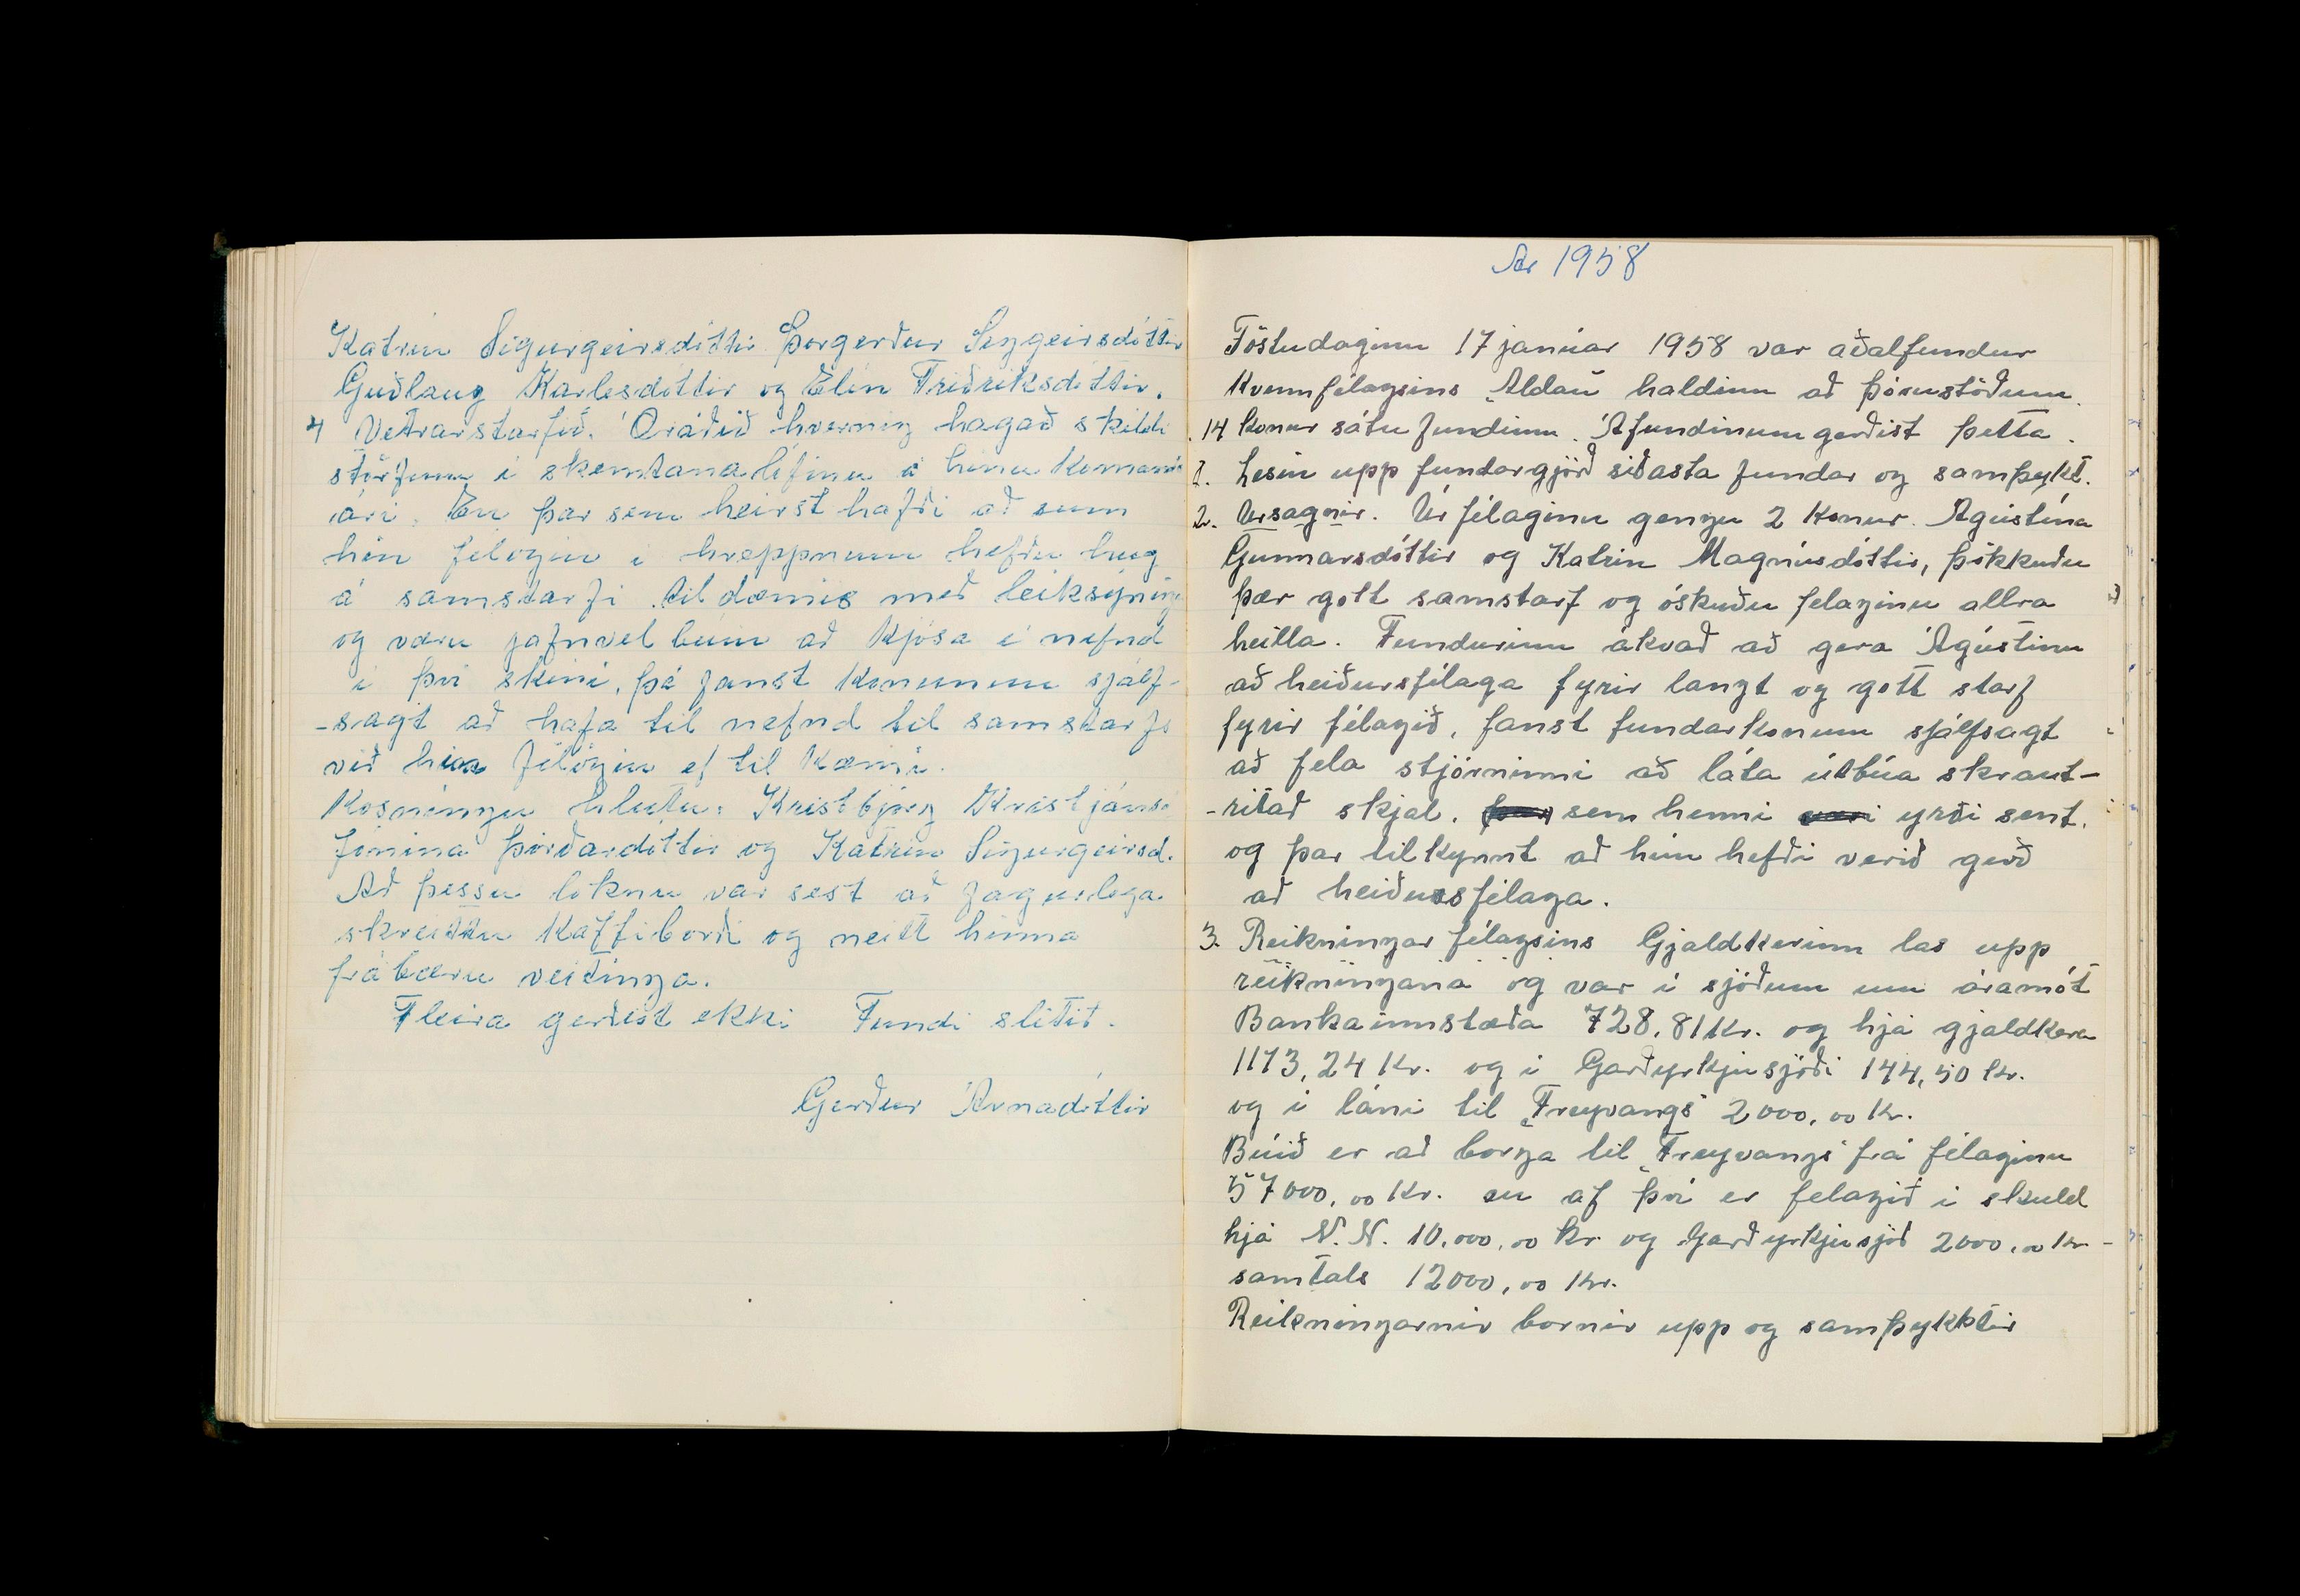 Katrín Sigurgeirsdóttir Þorgerður Siggeirsdóttir
Guðlaug Karlesdóttir og Elín Friðriksdóttir.
4 Vetrarstarfið. Óráðið hvernig hagað skildi
störfum í skemtanalífinu á hinu komandi
ári. En þar sem heirst hafði að sum
hin felögin í hreppnum hefðu hug
á samstarfi til dæmis með leiksýning
og væru jafnvel búin að kjósa í nefnd
í því skini, þá fanst konunum sjálf-
-sagt að hafa til nefnd til samstarfs
við hin félögin ef til kæmi.
Kosningu hlutu: Kristbjörg Kristjánsd
Jónína Þórðardóttir og Katrín Sigurgeirsd.
Að þessu loknu var sest að fagurlega
skreittu kaffiborði og neitt hinna
frábæru veitinga.
Fleira gerðist ekki Fundi slitið.
Gerður Árnadóttir
Ár 1958
Föstudaginn 17 janúar 1958 var aðalfundur
Kvennfélagsins „Aldan" haldinn að Þórustöðum.
14 konur sátu fundinn. Á fundinum gerðist þetta.
1. Lesin upp fundargjörð síðasta fundar og samþykt.
2. Úrsagnir. Úr félaginu gengu 2 konur. Agústína
Gunnarsdóttir og Katrín Magnúsdóttir, þökkuðu
þær gott samstarf og óskuðu felaginu allra
heilla. Fundurinn ákvað að gera Ágústínu
að heiðursfélaga fyrir langt og gott starf
fyrir félagið, fanst fundarkonum sjálfsagt
að fela stjórninni að láta útbúa skraut-
-ritað skjal. sem henni yrði sent.
og þar tilkynnt að hún hefði verið gerð
að heiðursfélaga.
3. Reikningar félagsins Gjaldkerinn las upp
reikningana og var í sjóðum um áramót
Bankainnstæða 728.81 Kr. og hjá gjaldkera
1173,24 Kr. og í Garðyrkjusjóði 144,50 Kr.
og í láni til „Freyvangs" 2000,00 Kr.
Búið er að borga til „Freyvangs" frá félaginu
57000,00 Kr. en af því er felagið í skuld
hjá N.N. 10.000,00 Kr og Garðyrkjusjóð 2000,00 Kr -
samtals 12000,00 Kr.
Reikningarnir bornir upp og samþykktir